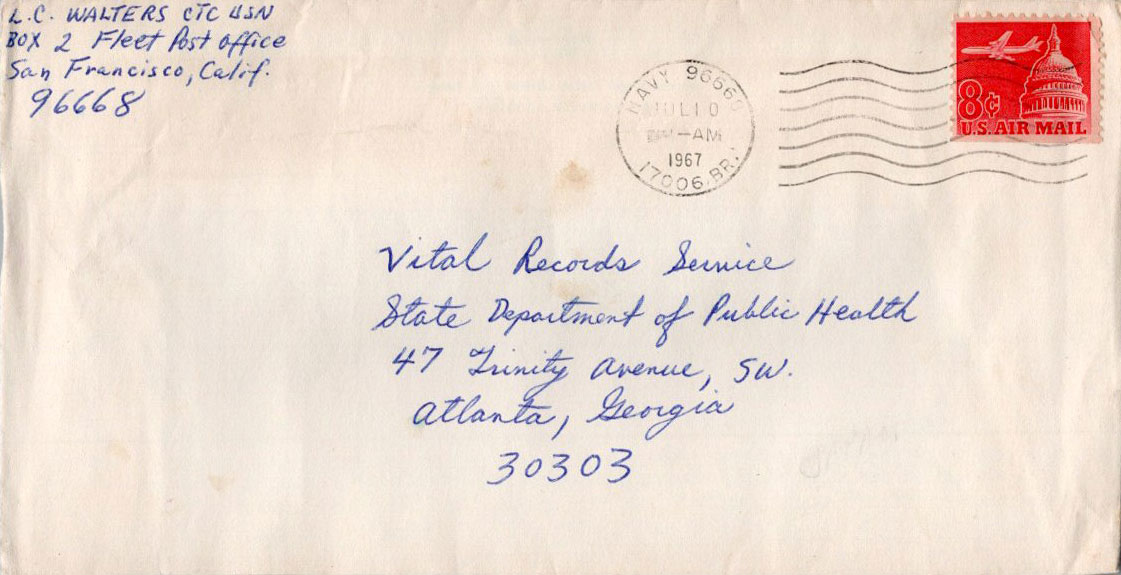 L.C. WALTERS CTC USN
BOX 2 Fleet Post Office
San Francisco, Calif.
96668
NAVY
JUL 10
-AM
1967
17006.BR.
8¢
U.S. AIR MAIL
Vital Records Service
State Department of Public Health
47 Trinity Avenue, SW.
Atlanta, Georgia
30303